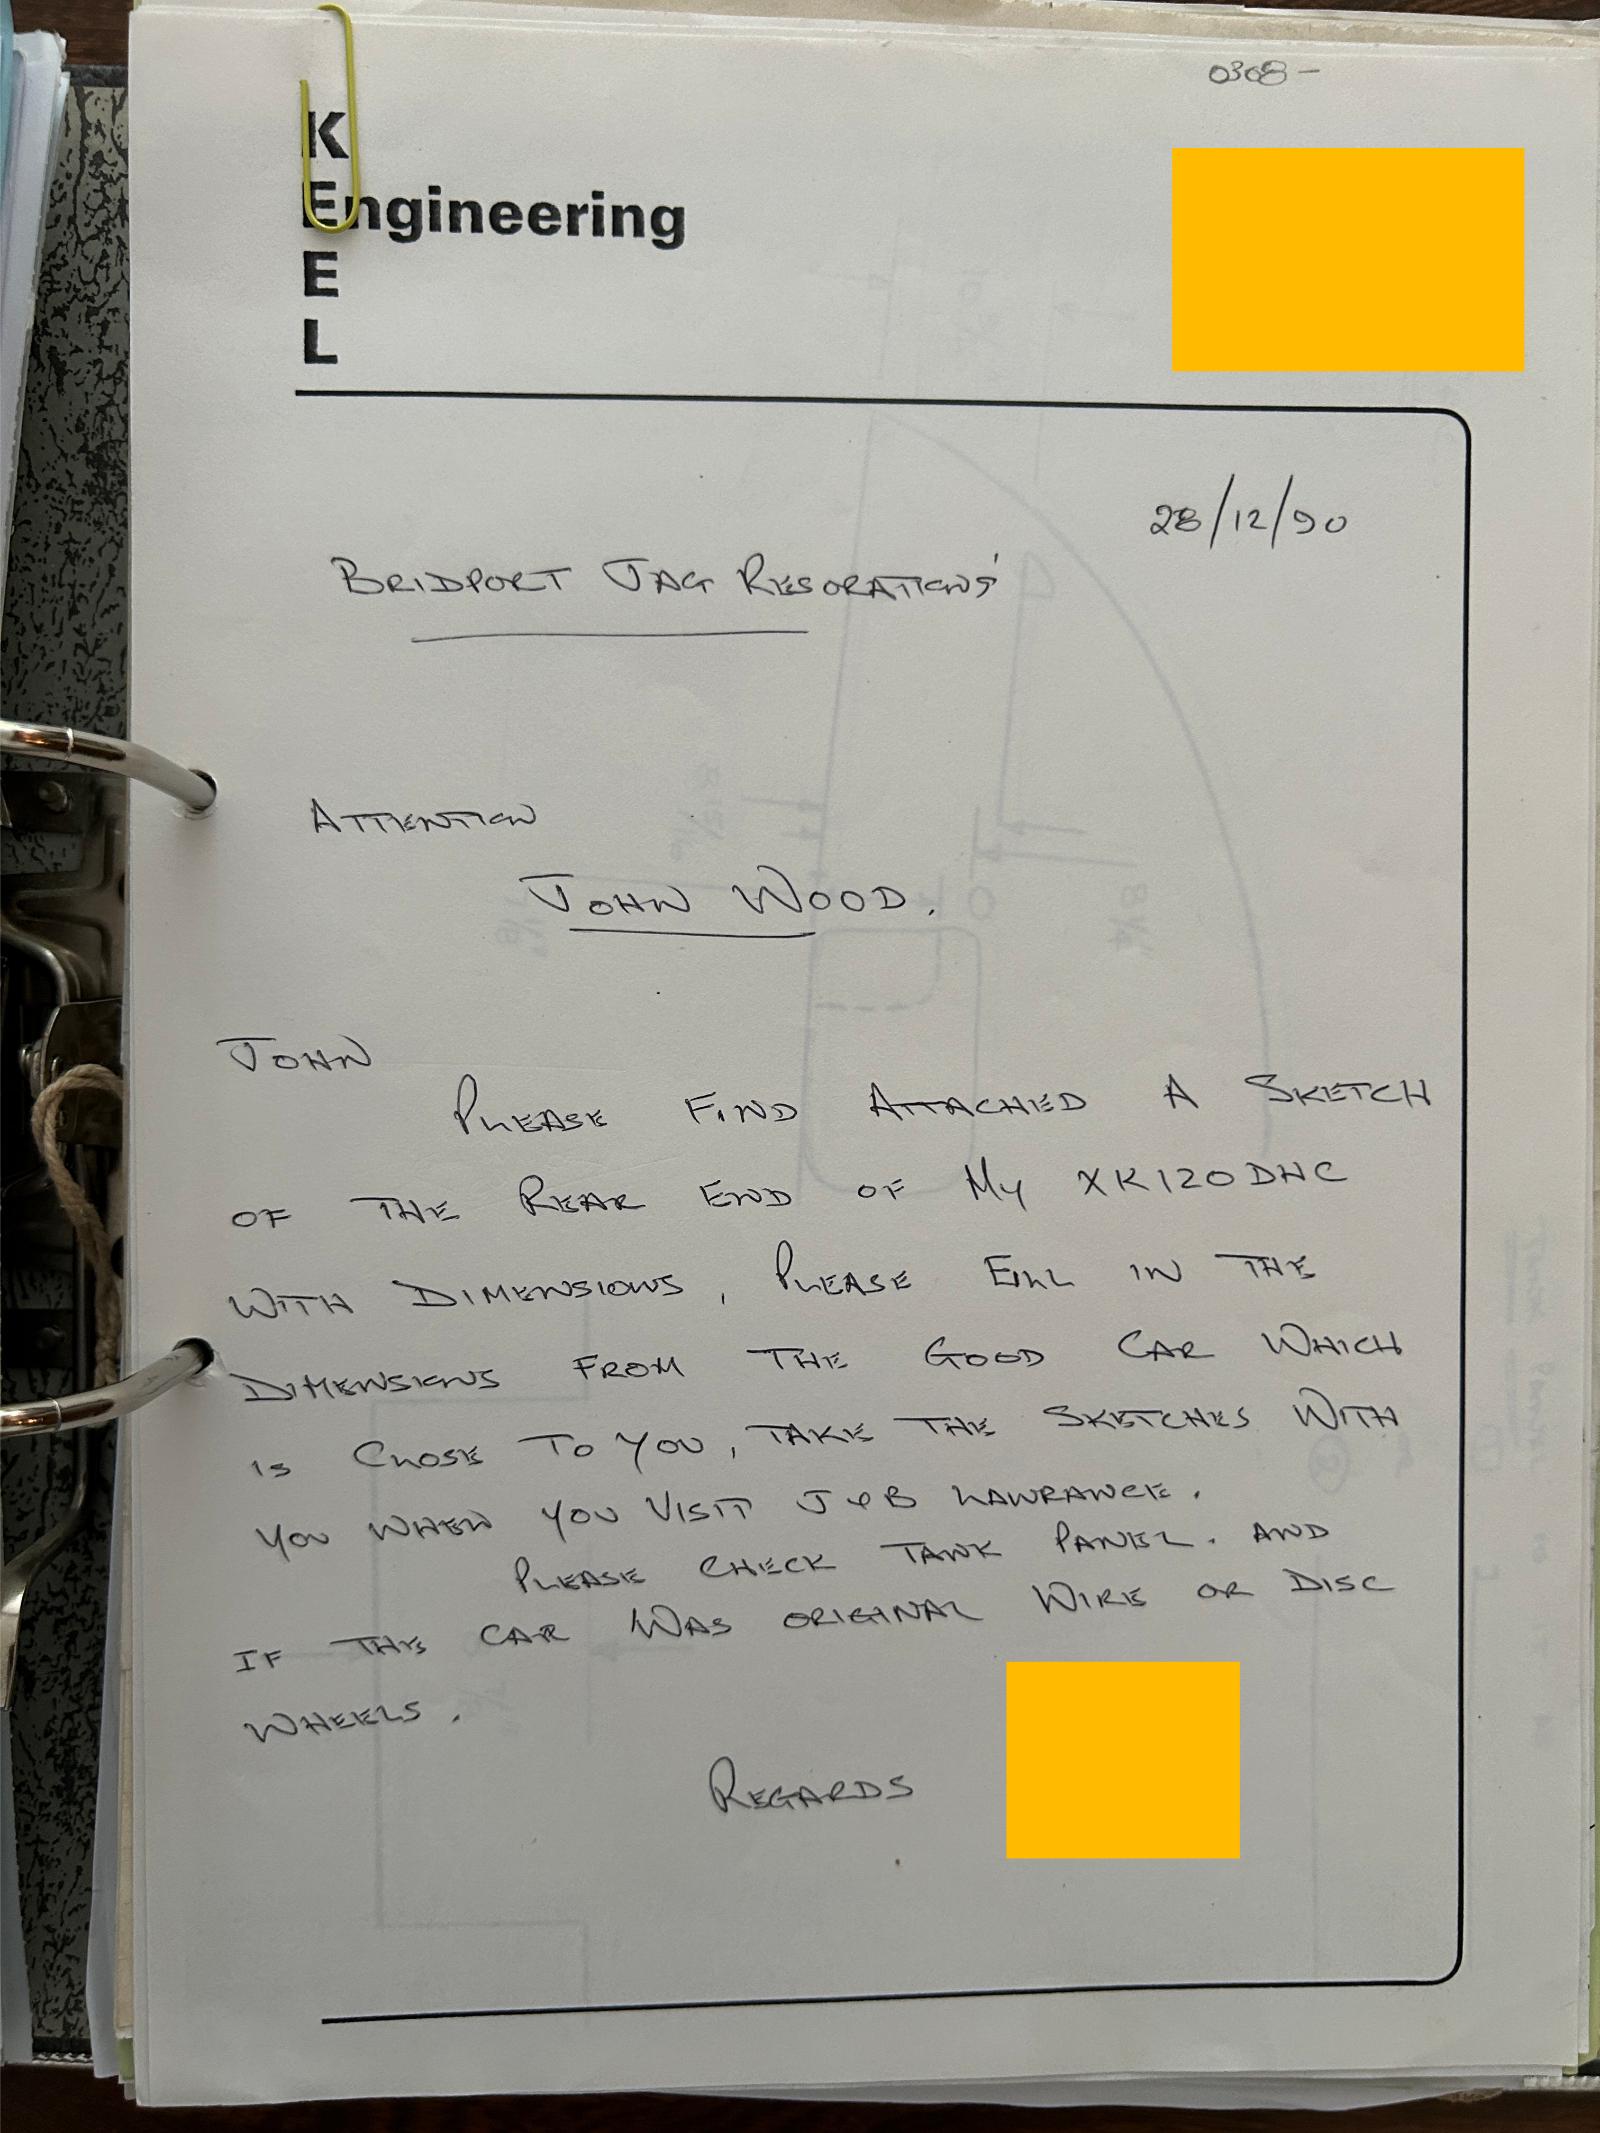 0308 -
K
Engineering
E
L
28/12/90
BRIDPORT JAG RESORATIONS'
ATTENTION
JOHN WOOD.
JOHN
PLEASE FIND ATTACHED A SKETCH
OF THE REAR END OF MY XK120DHC
WITH DIMENSIONS, PLEASE FILL IN THE
DIMENSIONS FROM THE GOOD CAR WHICH
IS CLOSE TO YOU, TAKE THE SKETCHES WITH
YOU WHEN YOU VISIT J & B LAWRANCE.
PLEASE CHECK TANK PANEL. AND
IF THIS CAR WAS ORIGINAL WIRE OR DISC
WHEELS.
REGARDS